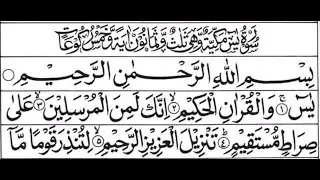 سُوْرَةُ يٰسٓ مَكِّيَّةٌ وَّهِيَ ثَلٰثٌ وَّثَمَانُوْنَ اٰيَةً وَّخَمْسُ رُكُوْعَاتٍ
بِسْمِ اللهِ الرَّحْمٰنِ الرَّحِيْمِ ○
يٰسٓ ۝١ وَالْقُرْاٰنِ الْحَكِيْمِ ۝٢ اِنَّكَ لَمِنَ الْمُرْسَلِيْنَ ۝٣ عَلٰى
صِرَاطٍ مُّسْتَقِيْمٍ ۝٤ تَنْزِيْلَ الْعَزِيْزِ الرَّحِيْمِ ۝٥ لِتُنْذِرَ قَوْمًا مَّآ